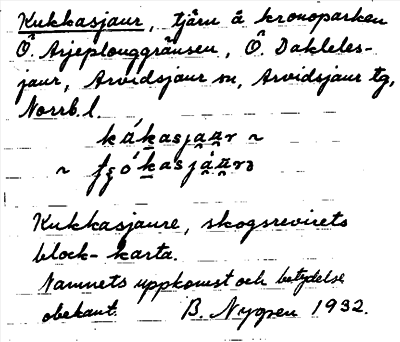 Kukkasjaur, tjärn å kronoparken
Ö. Arjeplouggränsen, Ö. Dakleles-
jaur, Arvidsjaur sn, Arvidsjaur tg,
Norrb. l.
kákasjaar ~
~
Kukkasjaure, skogsrevirets
block-karta.
Namnets uppkomst och betydelse
obekant. B. Nygren 1932.